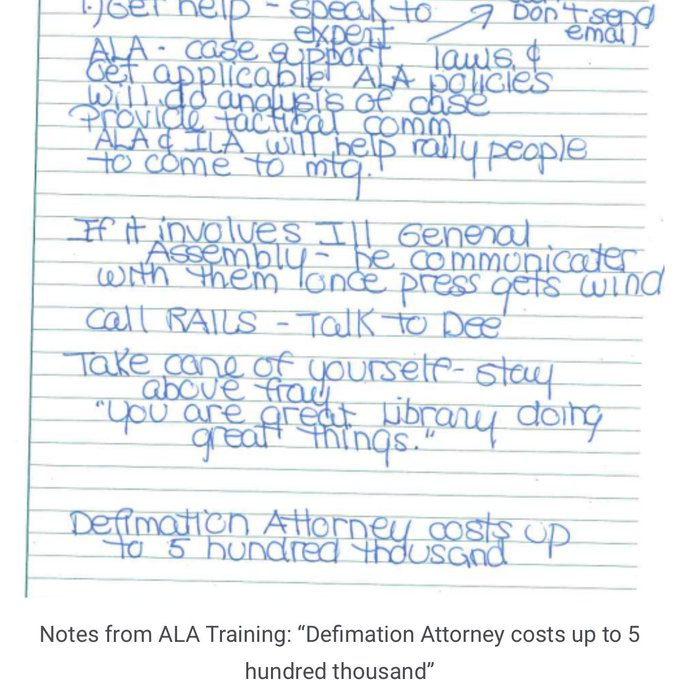 1.) Get help - speak to
expert
Don't send
email
ALA - case support laws, &
Get applicable ALA policies
will do analysis of case
Provide tactical comm
ALA & ILA will help rally people
to come to mtg.
If it involves Ill General
Assembly - be communicater
with them once press gets wind
Call RAILS - Talk to Dee
Take care of yourself - stay
above fray
"You are great Library doing
great things."
Defimation Attorney costs up
to 5 hundred thousand
Notes from ALA Training: “Defimation Attorney costs up to 5
hundred thousand”